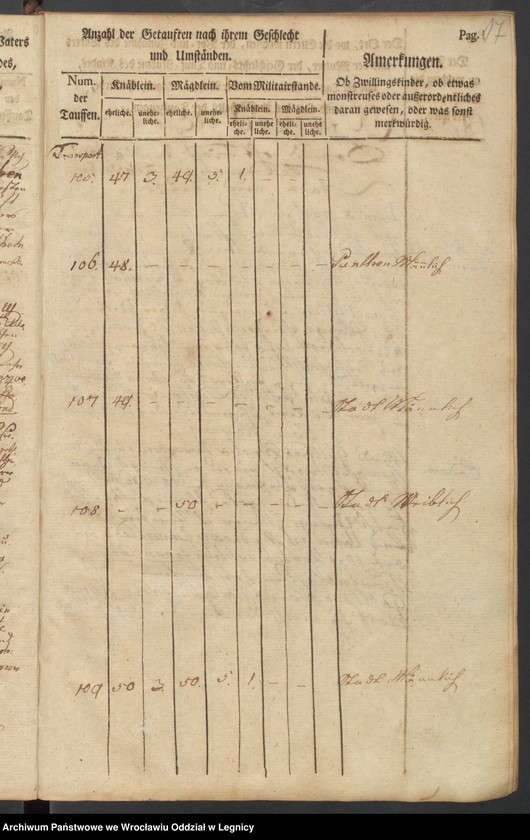 Anzahl der Getauften nach ihrem Geschlecht
und Umständen.
Pag. 57
Num.
der
Tauffen.
Knäblein.
Mägdlein.
Vom Militairstande.
Knäblein.
Mägdlein.
eheliche.
unehe-
liche.
eheliche.
unehe-
liche.
eheli-
che.
unehe
liche.
eheli-
che.
unehe
liche.
Amerkungen.
Ob Zwillingskinder, ob etwas
monstreuses oder außerordentliches
daran gewesen, oder was sonst
merkwürdig.
Transport
105. 47 3. 49. 5. 1. – –
106. 48. – – – – – – – Männlich
107 49. – – – – – – – Stadt Männlich
108. – – 50 – – – – – Stadt Weiblich
109 50 3. 50. 5. 1. – – Stadt Männlich
Vaters
Archiwum Państwowe we Wrocławiu Oddział w Legnicy